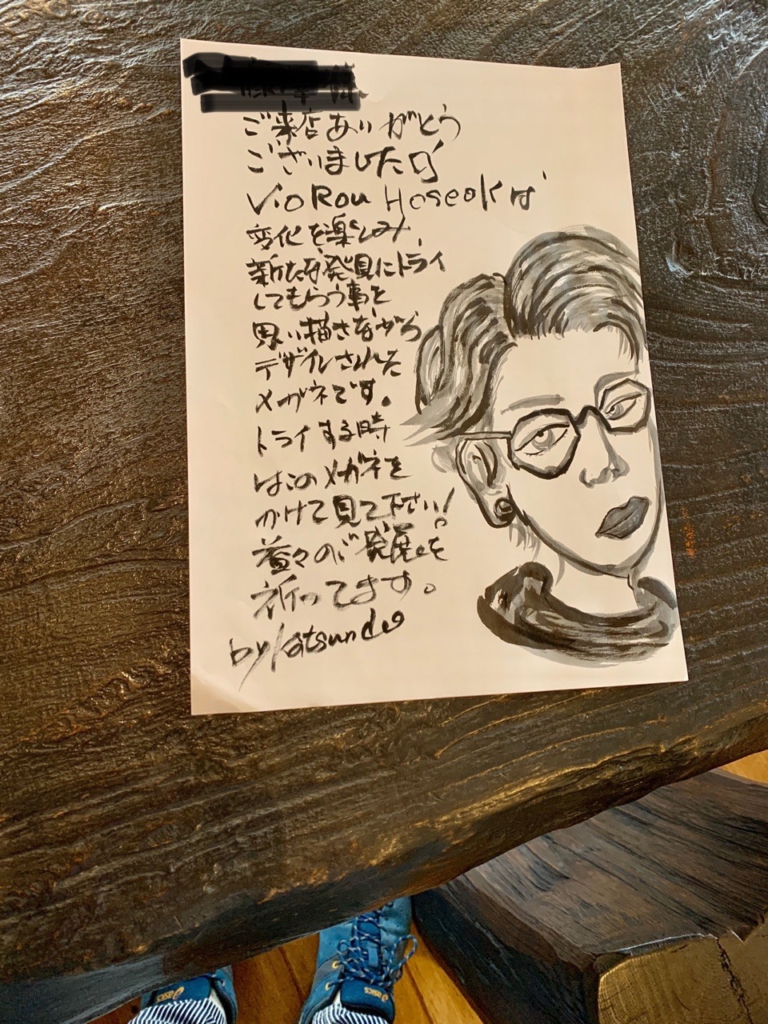 様
ご来店ありがとう
ございました
VioRou Hoseokは
変化を楽しみ、
新たな発見にトライ
してもらう事を
思い描きながら
デザインされた
メガネです。
トライする時
はこのメガネを
かけて見て下さい!
益々のご発展を
祈ってます。
by Katsundo
asics
asics